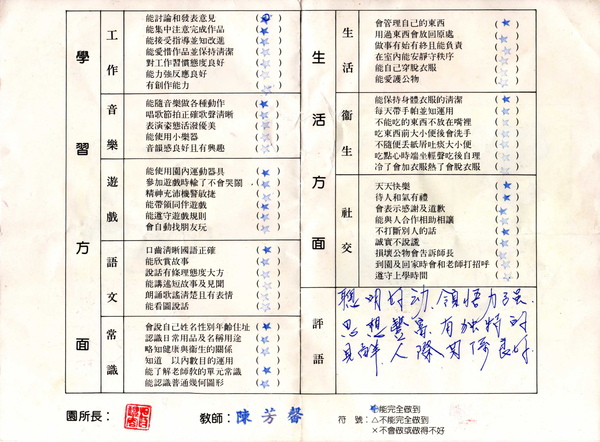 學習方面
工作
能討論和發表意見 (★)
能集中注意完成作品 (☆)
能接受指導並知改進 (☆)
能愛惜作品並保持清潔 (☆)
對工作習慣態度良好 (☆)
能力強反應良好 (☆)
有創作能力 (☆)
音樂
能隨音樂做各種動作 (★)
唱歌節拍正確歌聲清晰 (☆)
表演姿態活潑優美 (☆)
能使用小樂器 (☆)
音韻感良好且有興趣 (☆)
遊戲
能使用園內運動器具 (★)
參加遊戲時輸了不會哭鬧 (★)
精神充沛機警敏捷 (☆)
能帶領同伴遊戲 (☆)
能遵守遊戲規則 (☆)
會自動找朋友玩 (☆)
語文
口齒清晰國語正確 (★)
能欣賞故事 (☆)
說話有條理態度大方 (☆)
能講述短故事及見聞 (☆)
朗誦歌謠清楚且有表情 (☆)
能看圖說話 (☆)
常識
會說自己姓名性別年齡住址 (★)
認識日常用品及名稱用途 (☆)
略知健康與衛生的關係 (☆)
知道 以內數目的運用 (☆)
能了解老師教的單元常識 (★)
能認識普通幾何圖形 (☆)
生活方面
生活
會管理自己的東西 (★)
用過東西會放回原處 (☆)
做事有始有終且能負責 (☆)
在室內能安靜守秩序 (☆)
能自己穿脫衣服 (☆)
能愛護公物 (☆)
衛生
能保持身體衣服的清潔 (★)
每天帶手帕並知運用 (☆)
不能吃的東西不放在嘴裡 (☆)
吃東西前大小便後會洗手 (☆)
不隨便丟紙屑吐痰大小便 (☆)
吃點心時端坐輕聲吃後自理 (☆)
冷了會加衣服熱了會脫衣服 (☆)
社交
天天快樂 (★)
待人和氣有禮 (★)
會表示感謝及道歉 (☆)
能與人合作相助相讓 (☆)
不打斷別人的話 (★)
誠實不說謊 (☆)
損壞公物會告訴師長 (☆)
到園及回家時會和老師打招呼 (☆)
遵守上學時間 (☆)
評語
聰明好動.領悟力強.
思想豐富.有獨特的
見解.人際關係良好
園所長：
教師：陳芳馨
符號：★能完全做到
△不能完全做到
×不會做或做得不好